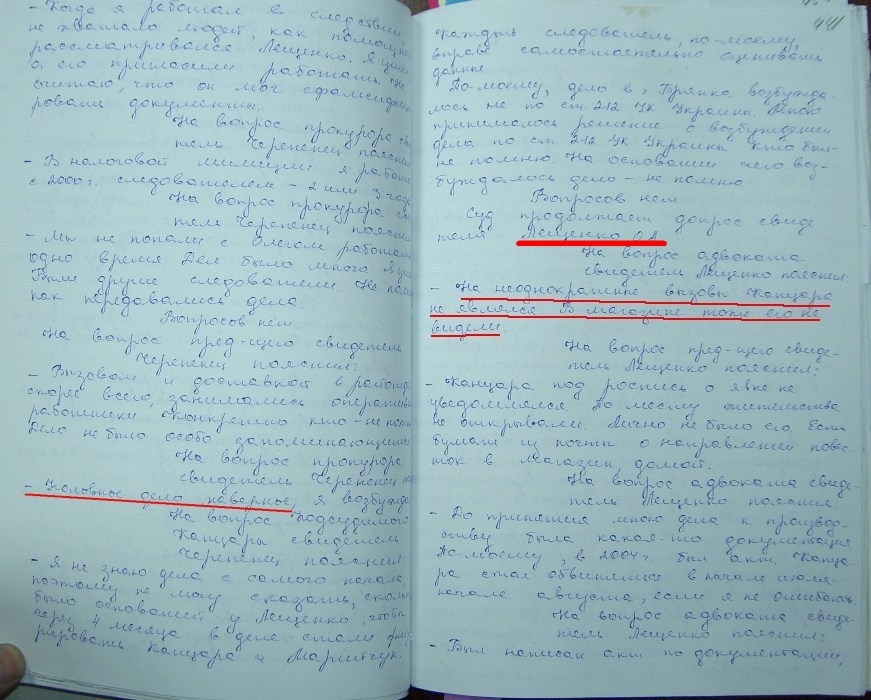 - Когда я работал в следствии
не хватало людей, как помощник
рассматривался Лещенко. Я ушел
а его пригласили работать. Не
считаю, что он мог сфальсифици-
ровать документы.
На вопрос прокурора сви
тель Черепенец пояснил
- В налоговой милиции я работал
с 2000 г. следователем - 2 или 3 года
На вопрос прокурора сви
тель Черепенец пояснил
- Мы не попали с Олегом работать
одно время Дел было много. Я ушел
Были другие следователи. Не помню
как передавались дела.
Вопросов нет.
На вопрос пред-щего свидетель
Черепенец пояснил:
- Вызовом и доставкой в
скорее всего, занимались оперативные
работники Конкретно кто - не помню
Дело не было особо запоминающимся
На вопрос прокурора
свидетель Черепенец
- Уголовное дело наверное, я возбужд
На вопрос подсудимого
Канцары свидетель
Черепенец пояснил:
- Я не знаю дела с самого начала,
поэтому не могу сказать, сколько
было оснований у Лещенко, чтобы
через 4 месяца в деле стали фигу
рировать Канцара и Марийчук.
441
каждый следователь, по-моему,
вправе самостоятельно оценивать
данные.
По-моему, дело в г. Брянка возбужда-
лось не по ст. 212 УК Украины. Мною
принималось решение о возбуждении
дела по ст. 212 УК Украины. Кто был -
не помню. На основании чего воз-
буждалось дело - не помню
Вопросов нет
Суд продолжает допрос свиде
теля Лещенко О.А.
На вопрос адвоката
свидетель Лещенко пояснил:
- На неоднократные вызовы Канцара
не являлся. В магазине тоже его не
видели.
На вопрос пред-щего свиде-
тель Лещенко пояснил:
- Канцара под роспись о явке не
уведомлялся. По месту жительства
не открывали. Лично не было его. Есть
бумаги из почты о направлении повес-
ток в магазин, домой.
На вопрос адвоката свиде-
тель Лещенко пояснил
- До принятия мною дела к производ-
ству была какая-то документация
По-моему, в 2004 г. был акт. Канца-
ра стал обвиняемым в начале июля -
начале августа, если я не ошибаюсь.
На вопрос адвоката свиде-
тель Лещенко пояснил:
- Был написан акт по документации,